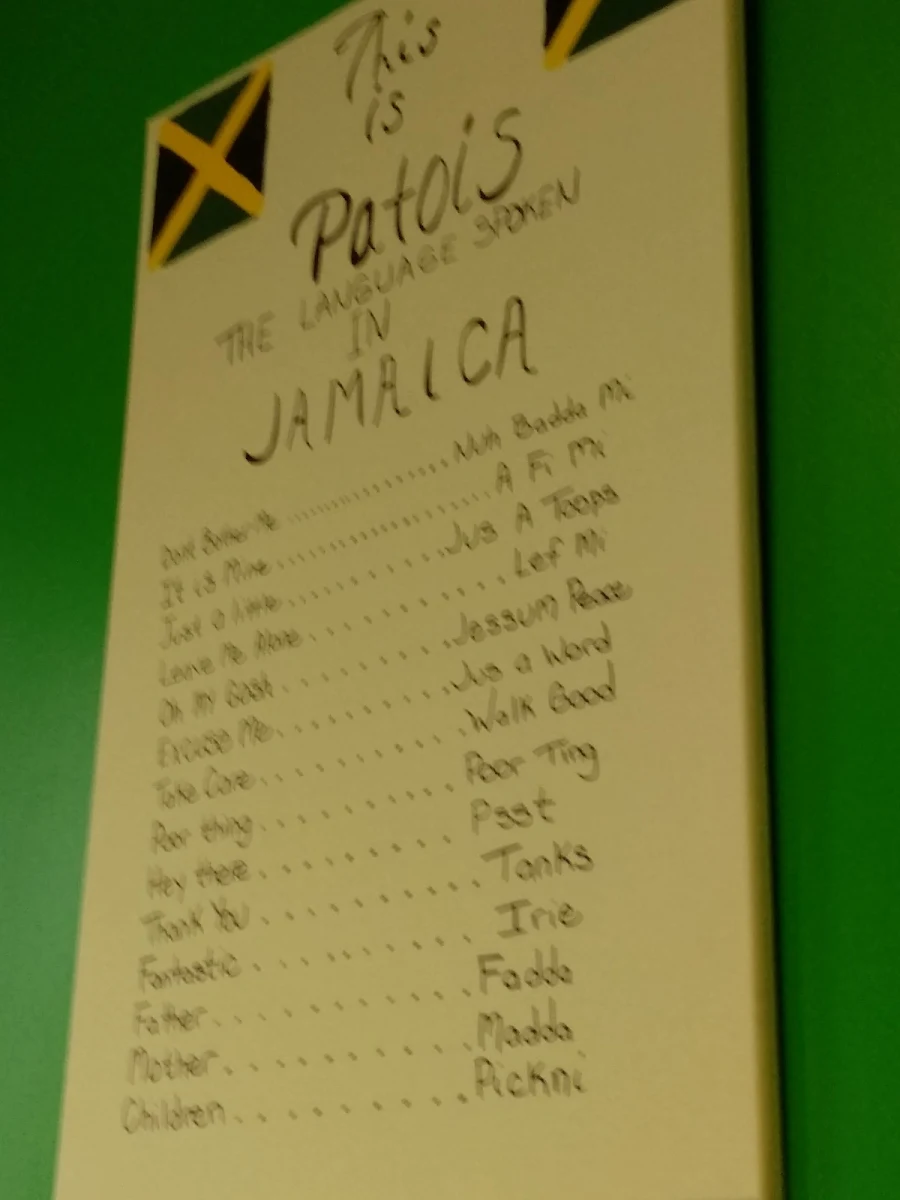 This
is
Patois
THE LANGUAGE SPOKEN
IN
JAMAICA
Dont Bother Me .................. Nuh Badda Mi
It is Mine .................. A Fi Mi
Just a little .............. Jus A Toops
Leave Me Alone ............ Lef Mi
Oh My Gosh .......... Jessum Peace
Excuse Me .......... Jus a Word
Take Care .......... Walk Good
Poor thing .......... Poor Ting
Hey there .......... Psst
Thank You .......... Tanks
Fantastic .......... Irie
Father .......... Fadda
Mother .......... Madda
Children .......... Pickni